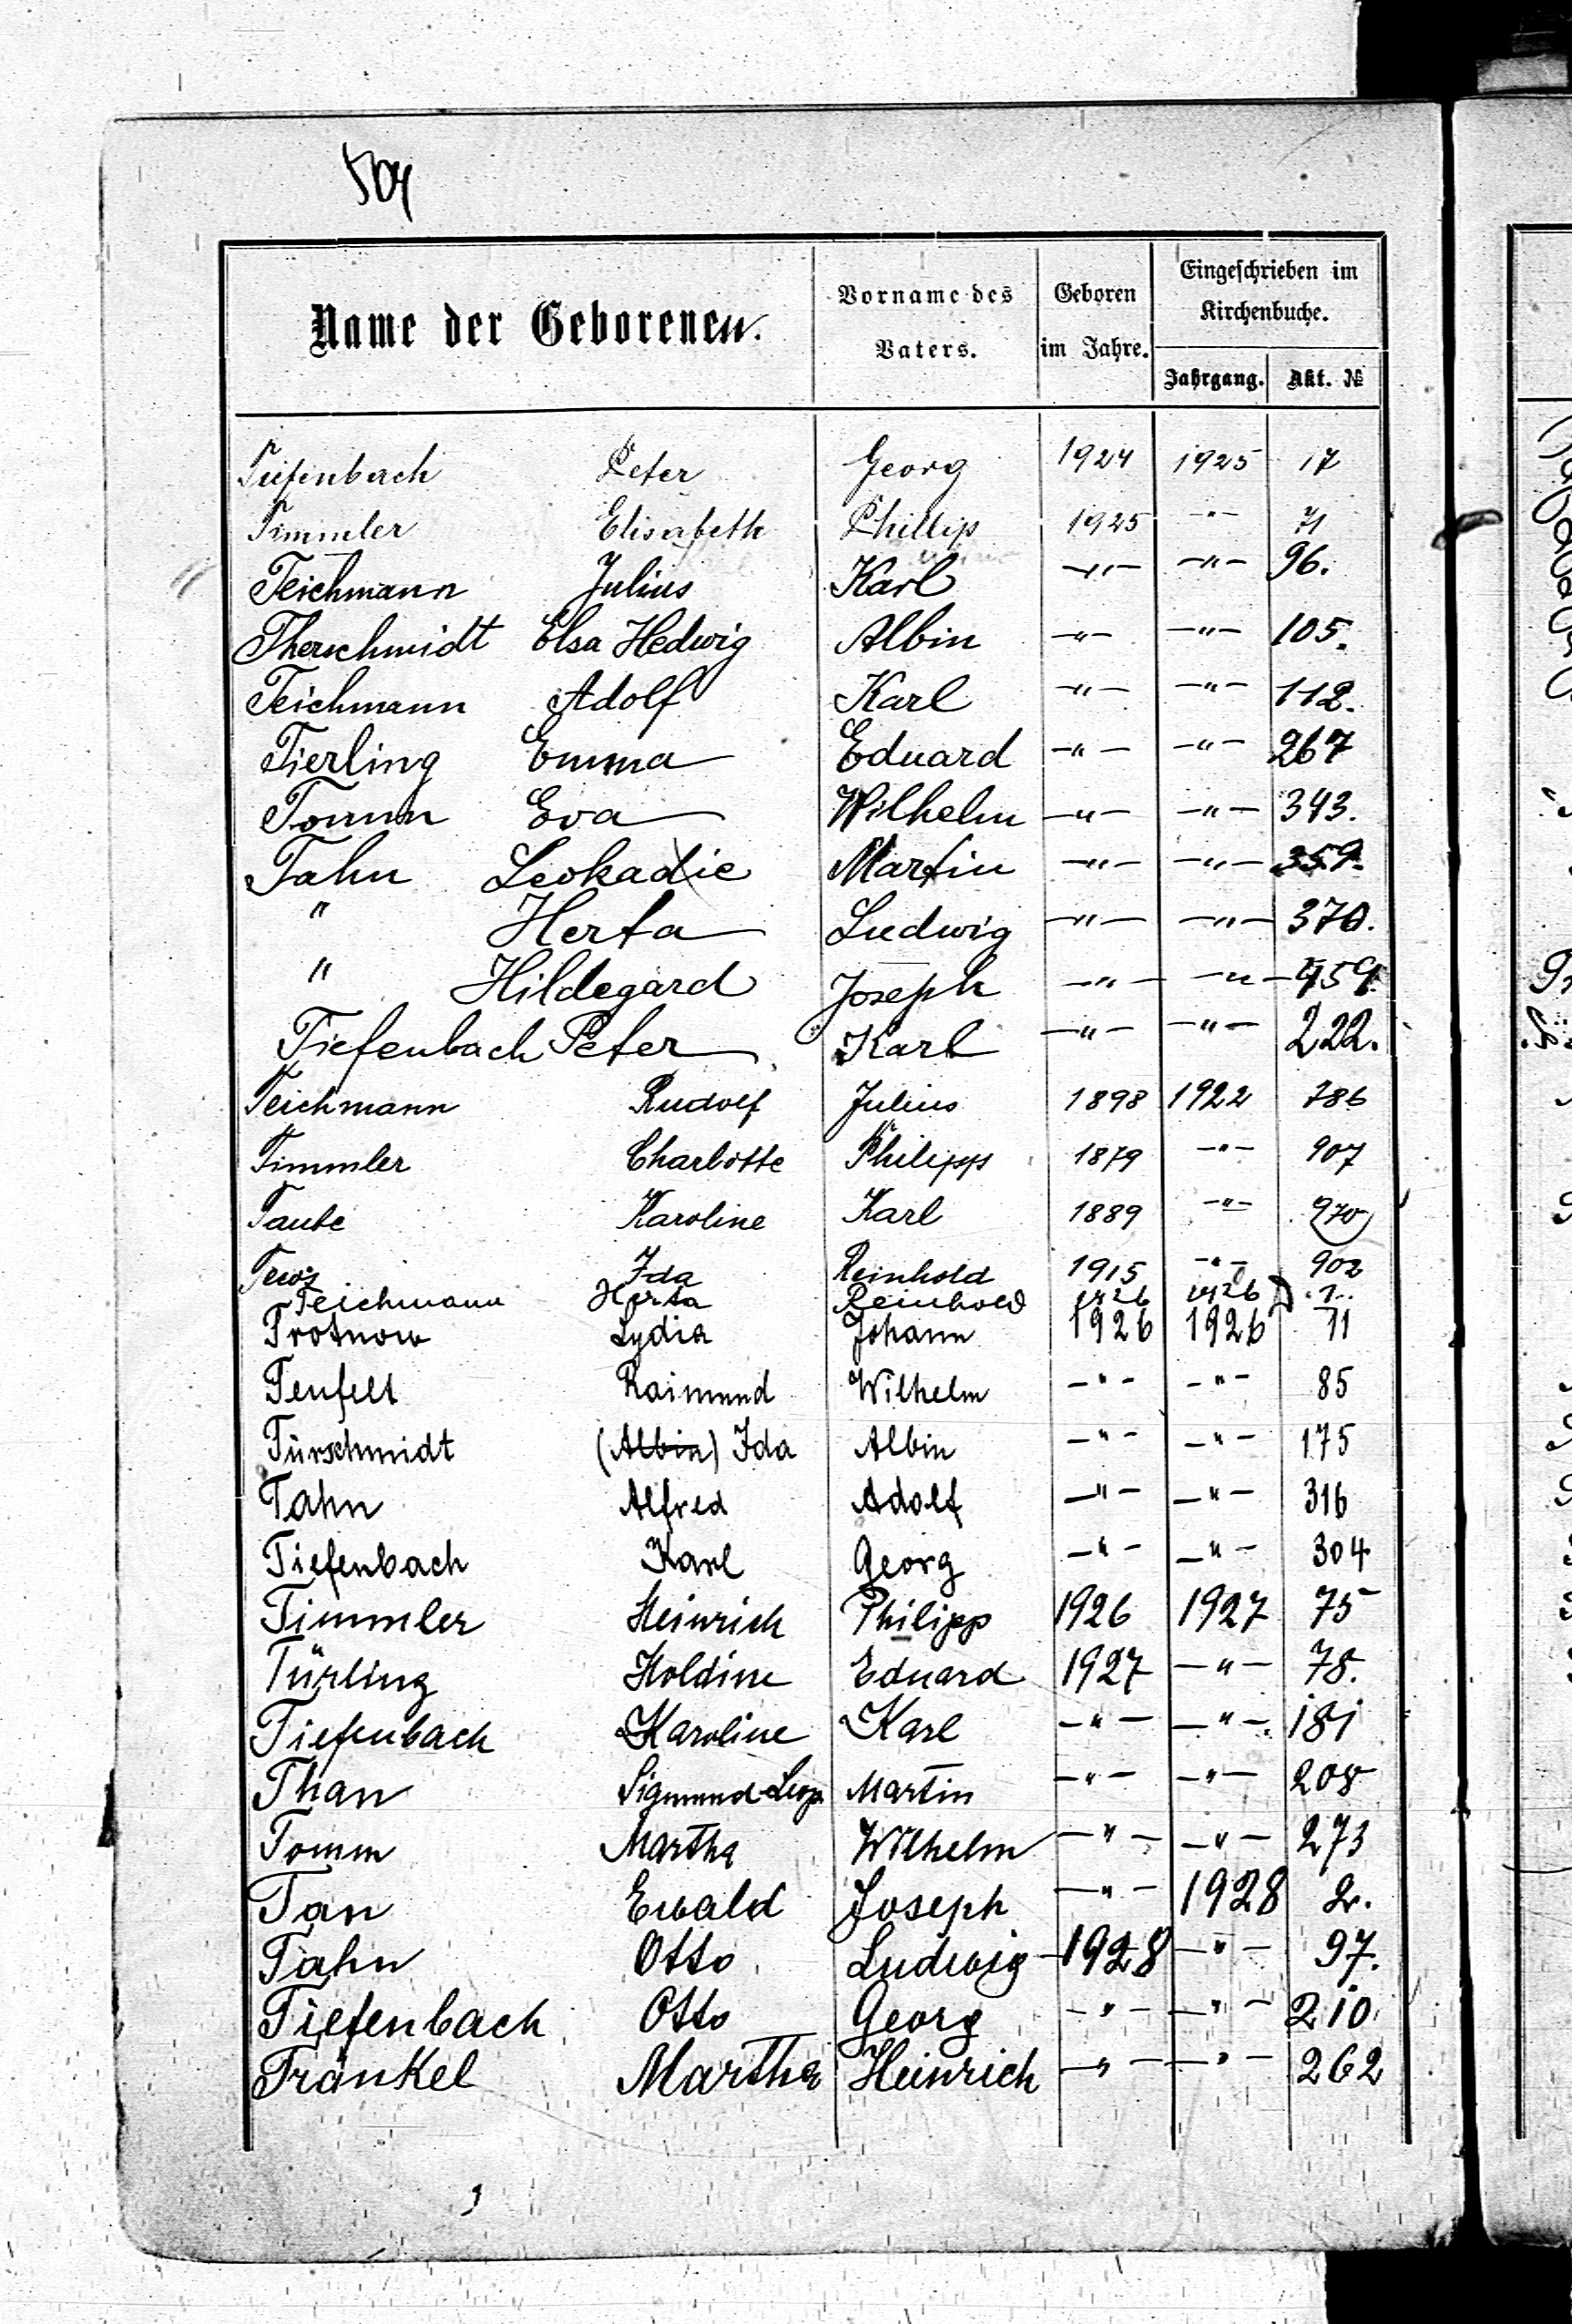 504
Name der Geborenen. Vorname des Vaters. Geboren im Jahre. Eingeschrieben im Kirchenbuche.
Jahrgang. Akt. №
Tiefenbach Peter Georg 1924 1925 17
Timmler Elisabeth Phillip 1925 -"- 71
Teichmann Julius Karl -"- -"- 96.
Therschmidt Elsa Hedwig Albin -"- -"- 105.
Teichmann Adolf Karl -"- -"- 112.
Tierling Emma Eduard -"- -"- 267
Tomm Eva Wilhelm -"- -"- 343.
Tahn Leokadie Martin -"- -"- 359.
" Herta Ludwig -"- -"- 370.
" Hildegard Joseph -"- -"- 459.
Tiefenbach Peter Karl -"- -"- 222.
Teichmann Rudolf Julius 1898 1922 786
Timmler Charlotte Philipp 1879 -"- 907
Taube Karoline Karl 1889 -"- 970
Ida Reinhold 1915 -"- 902
Teichmann Herta Reinhold 1926 1926
Trotnow Lydia Johann 1926 1926 71
Teufelt Raimund Wilhelm -"- -"- 85
Türschmidt (Albin) Ida Albin -"- -"- 175
Tahn Alfred Adolf -"- -"- 316
Tiefenbach Karl Georg -"- -"- 304
Timmler Heinrich Philipp 1926 1927 75
Türling Holdine Eduard 1927 -"- 78.
Tiefenbach Karoline Karl -"- -"- 181
Than Sigmund Martin -"- -"- 208
Tomm Martha Wilhelm -"- -"- 273
Tan Ewald Joseph -"- 1928 2.
Tahn Otto Ludwig 1928 -"- 97.
Tiefenbach Otto Georg -"- -"- 210
Tränkel Martha Heinrich -"- -"- 262